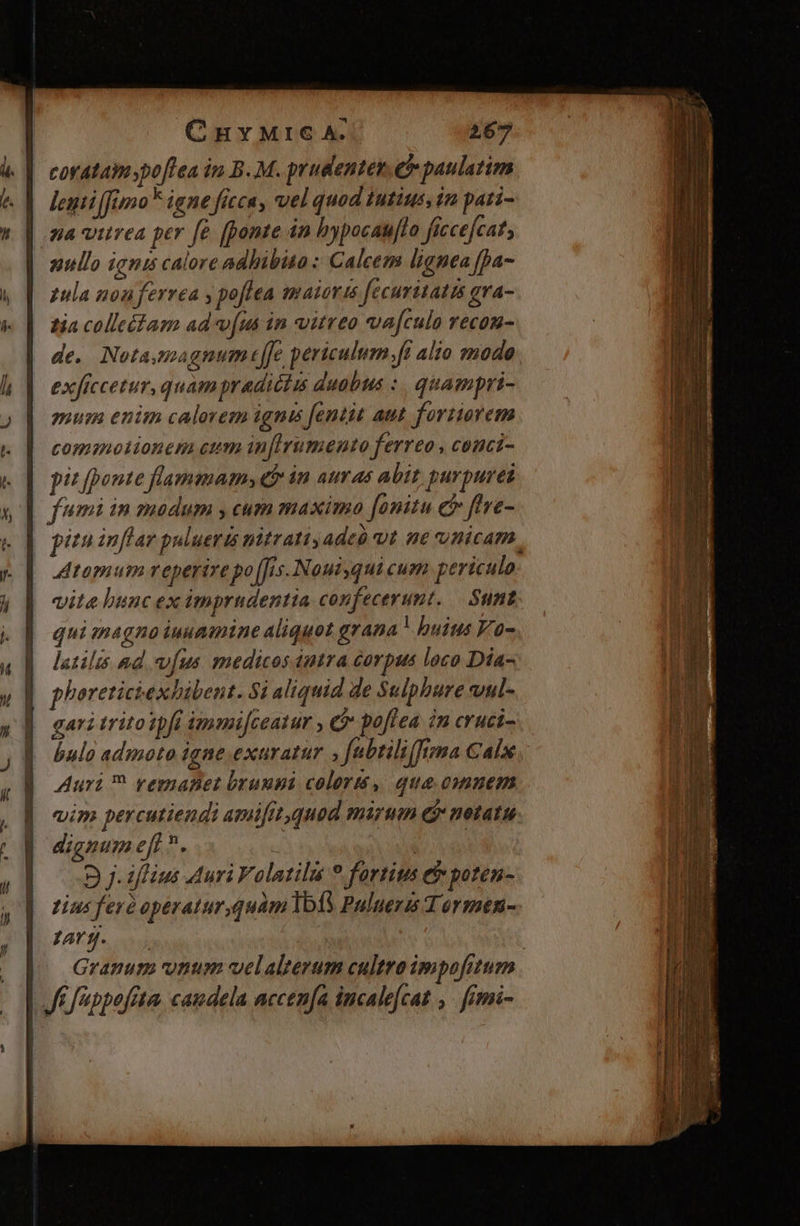 CHYMICA. 267
coratam, poſtea in B. M. prudenter & paulatim
lentiſſimo k igne ſicca, vel quod tutius, in pati-
na vitrea per ſe ſponte in hypocauſto ſicceſcat,
nullo ignis calore adhibito: Calcem lignea ſpa-
tula non ferrea, poſtea maioris ſecuritatis gra-
tia collectam ad vſus in vitreo vaſculo recon-
de. Nota, magnum eſſe periculum, ſi alio modo
exſiccetur, quàm prædictis duobus: quampri-
mum enim calorem ignis ſentit aut fortiorem
commotionem cum inſtrumento ferreo, conci-
pit ſponte flammam, & in auras abit purpurei
fumi in modum, cum maximo ſonitu & ſtre-
pitu inſtar pulueris nitrati, adeò vt ne vnicam
Atomum reperire poſſis. Noui, qui cum periculo
vitæ hunc ex imprudentia confecerunt. Sunt
qui magno iuuamine aliquot grana l huius Vo-
latilis ad vſus medicos intra corpus loco Dia-
phoretici exhibent. Si aliquid de Sulphure vul-
gari trito ipſi immiſceatur, & poſtea in cruci-
bulo admoto igne exuratur, ſubtiliſſima Calx
Auri m remanet brunni coloris, quæ omnem
vim percutiendi amiſit, quod mirum & notatu
dignum eſt n.
℈ j. iſtius Auri Volatilis o fortius & poten-
tius ferè operatur, quàm lbß Pulueris Tormen-
tarij.
Granum vnum vel alterum cultro impoſitum
ſi ſuppoſita candela accenſa incaleſcat, ſimi-